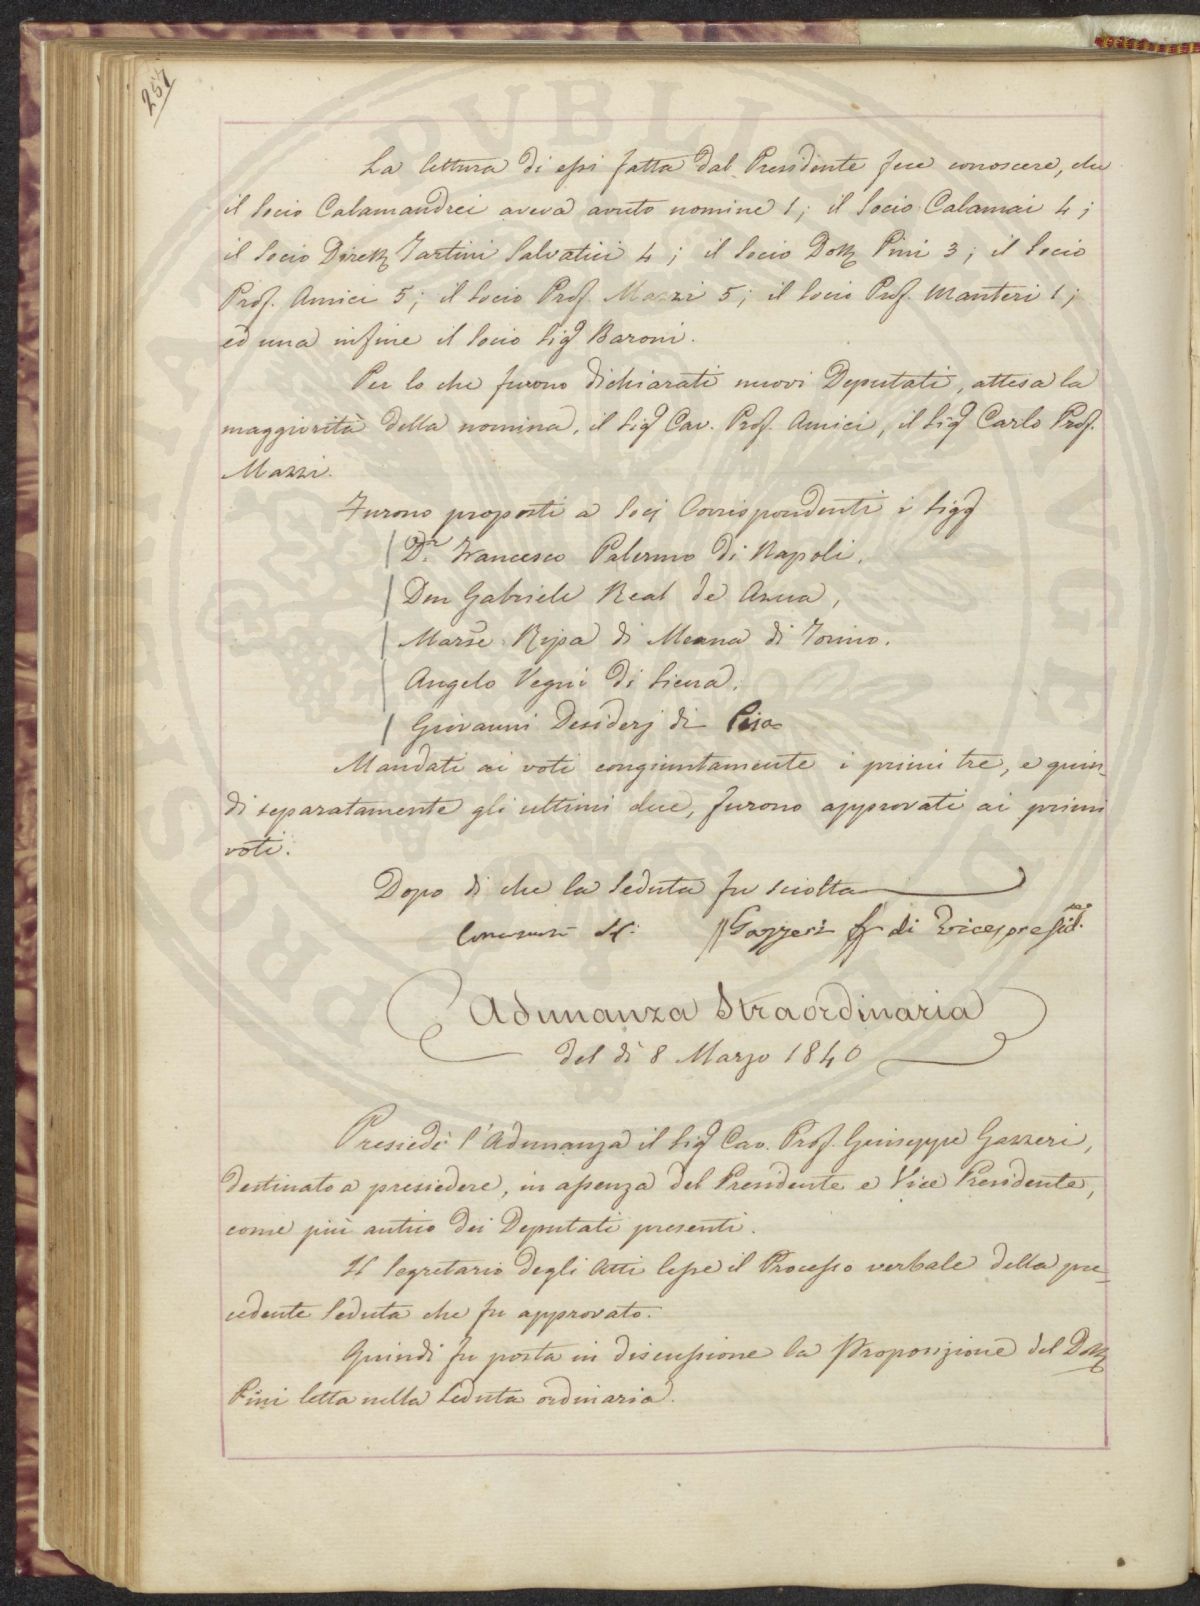 257
La lettura di essi fatta dal Presidente fece conoscere, che
il Socio Calamandrei aveva avuto nomine 1; il Socio Calamai 4;
il Socio Dirett. Tartini Salvatici 4; il Socio Dott. Pini 3; il Socio
Prof. Amici 5; il Socio Prof. Mazzi 5; il Socio Prof. Manteri 1;
ed una infine il Socio Sigr Baroni.
Per lo che furono dichiarati nuovi Deputati, attesa la
maggiorità della nomina, il Sigr Cav. Prof. Amici, il Sigr Carlo Prof.
Mazzi.
Furono proposti a Socj Corrispondenti i Sigg
Dr. Francesco Palermo di Napoli,
Don Gabriele Real de Azua,
Marse Ripa di Meana di Torino.
Angelo Vegni di Siena.
Giovanni Desiderj di Pisa
Mandati ai voti congiuntamente i primi tre, e quin-
di separatamente gli ultimi due, furono approvati ai primi
voti.
Dopo di che la Seduta fu sciolta
Gazzeri ff di Vicepresid.
Adunanza Straordinaria
del dì 8 Marzo 1840
Presiedè l'Adunanza il Sigr Cav. Prof. Giuseppe Gazzeri,
destinato a presiedere, in assenza del Presidente e Vice Presidente,
come più antico dei Deputati presenti.
Il Segretario degli Atti lesse il Processo verbale della pre-
cedente Seduta che fu approvato.
Quindi fu posta in discussione la Proposizione del Dott.
Pini letta nella Seduta ordinaria.